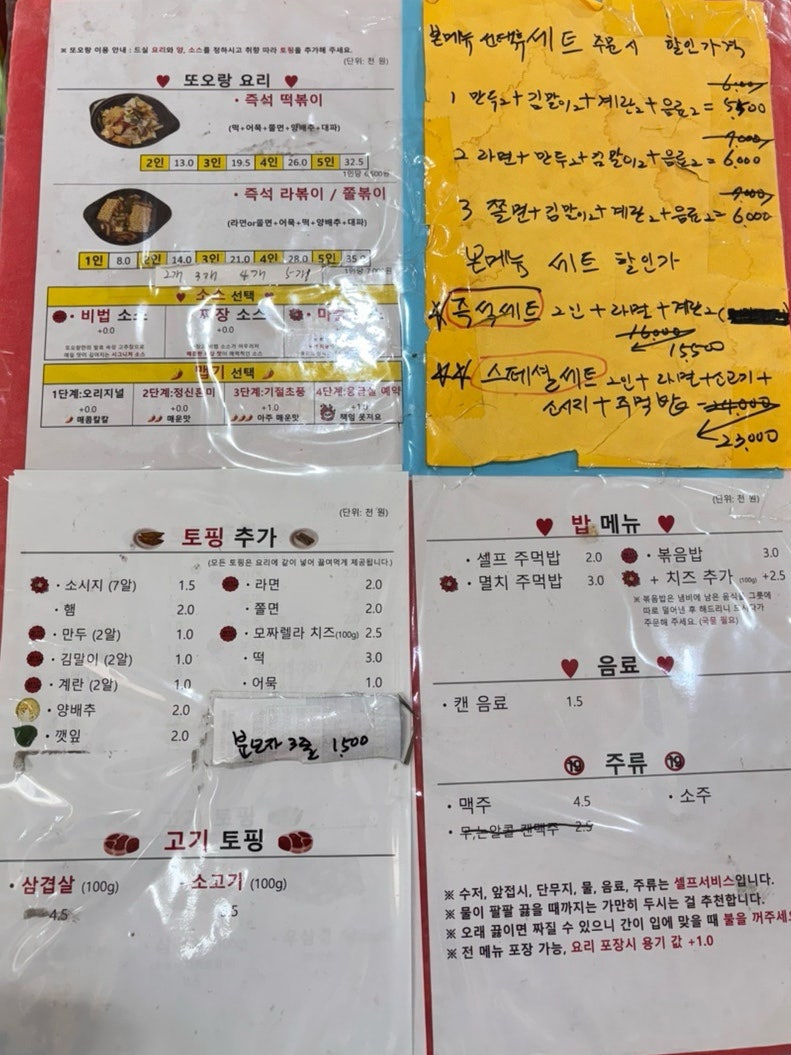 ※ 또오랑 이용 안내 : 드실 요리와 양, 소스를 정하시고 취향 따라 토핑을 추가해 주세요.
(단위: 천 원)
♥ 또오랑 요리 ♥
· 즉석 떡볶이
(떡+어묵+쫄면+양배추+대파)
2인 13.0 3인 19.5 4인 26.0 5인 32.5
1인당 6,500원
· 즉석 라볶이 / 쫄볶이
(라면or쫄면+어묵+떡+양배추+대파)
1인 8.0 2인 14.0 3인 21.0 4인 28.0 5인 35.0
2개 3개 4개 5개
1인당 7,000원
♥ 소스 선택 ♥
· 비법 소스 · 짜장 소스
+0.0 +0.0
맵기 선택
1단계:오리지널 2단계:정신혼미 3단계:기절초풍 4단계:응급실 예약
+0.0 +0.0 +1.0 +1.0
매콤칼칼 매운맛 아주 매운맛 책임 못져요
본메뉴 선택후 세트 주문시 할인가격
6.000
1 만두2+김말이2+계란2+음료2= 5,500
7.000
2 라면+만두2+김말이2+음료2= 6.000
7.000
3 쫄면+김말이2+계란2+음료2= 6.000
본메뉴 세트 할인가
즉석세트 2인+라면+계란2
16.000
15500
스페셜세트 2인+라면+소고기+
소시지+주먹밥 24.000
23,000
(단위: 천 원)
토핑 추가
(모든 토핑은 요리에 같이 넣어 끓여먹게 제공됩니다.)
· 소시지 (7알) 1.5 · 라면 2.0
· 햄 2.0 · 쫄면 2.0
· 만두 (2알) 1.0 · 모짜렐라 치즈(100g) 2.5
· 김말이 (2알) 1.0 · 떡 3.0
· 계란 (2알) 1.0 · 어묵 1.0
· 양배추 2.0
· 깻잎 2.0
분모자 3줄 1,500
고기 토핑
· 삼겹살 (100g) · 소고기 (100g)
4.5
(단위: 천 원)
♥ 밥 메뉴 ♥
· 셀프 주먹밥 2.0 · 볶음밥 3.0
· 멸치 주먹밥 3.0 + 치즈 추가 (100g) +2.5
※ 볶음밥은 냄비에 남은 음식을 그릇에
따로 덜어낸 후 해드리니 드시다가
주문해 주세요. (국물 필요)
♥ 음료 ♥
· 캔 음료 1.5
19 주류 19
· 맥주 4.5 · 소주
· 무,논알콜 캔맥주 2.5
※ 수저, 앞접시, 단무지, 물, 음료, 주류는 셀프서비스입니다.
※ 물이 팔팔 끓을 때까지는 가만히 두시는 걸 추천합니다.
※ 오래 끓이면 짜질 수 있으니 간이 입에 맞을 때 불을 꺼주세요
※ 전 메뉴 포장 가능, 요리 포장시 용기 값 +1.0